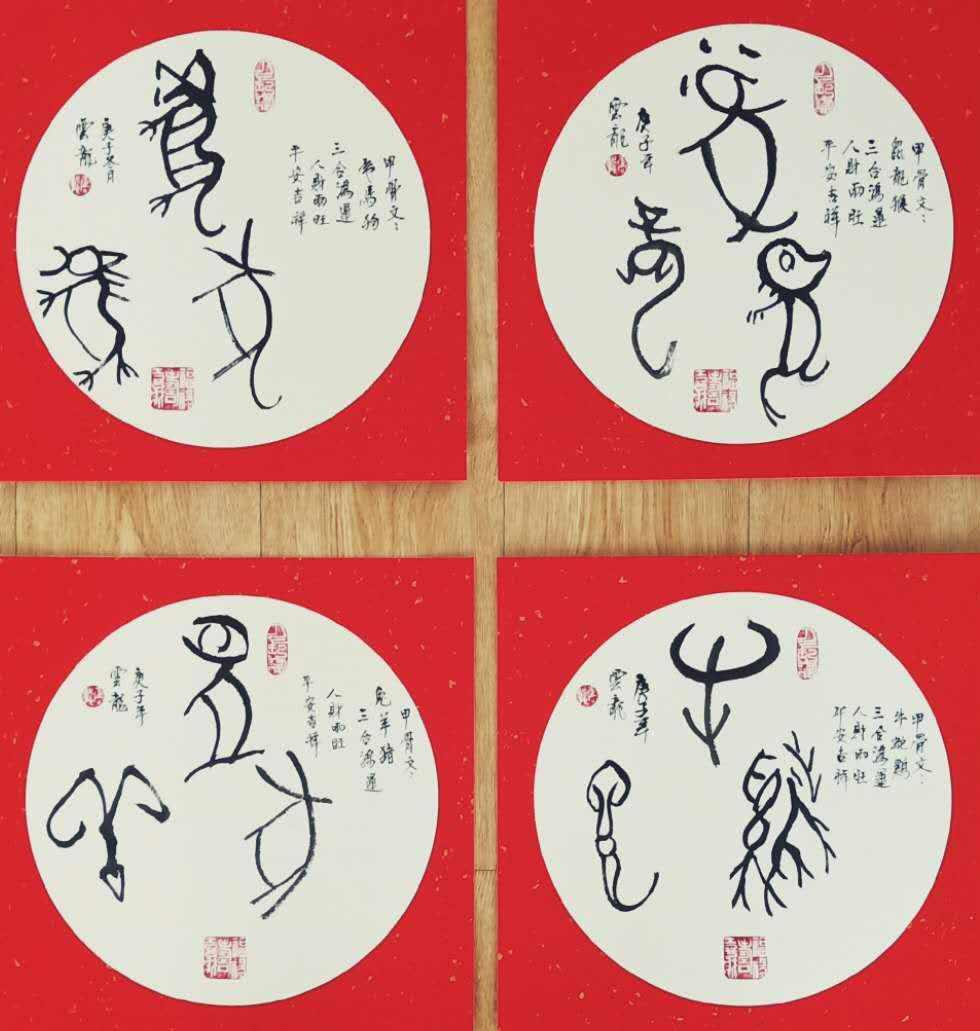 甲骨文:
虎馬狗
三合鴻運
人財兩旺
平安吉祥
庚子冬月
雲龍
甲骨文:
鼠龍猴
三合鴻運
人財兩旺
平安吉祥
庚子年
雲龍
甲骨文:
兔羊豬
三合鴻運
人財兩旺
平安吉祥
庚子年
雲龍
甲骨文:
牛蛇鷄
三合鴻運
人財兩旺
平安吉祥
庚子年
雲龍